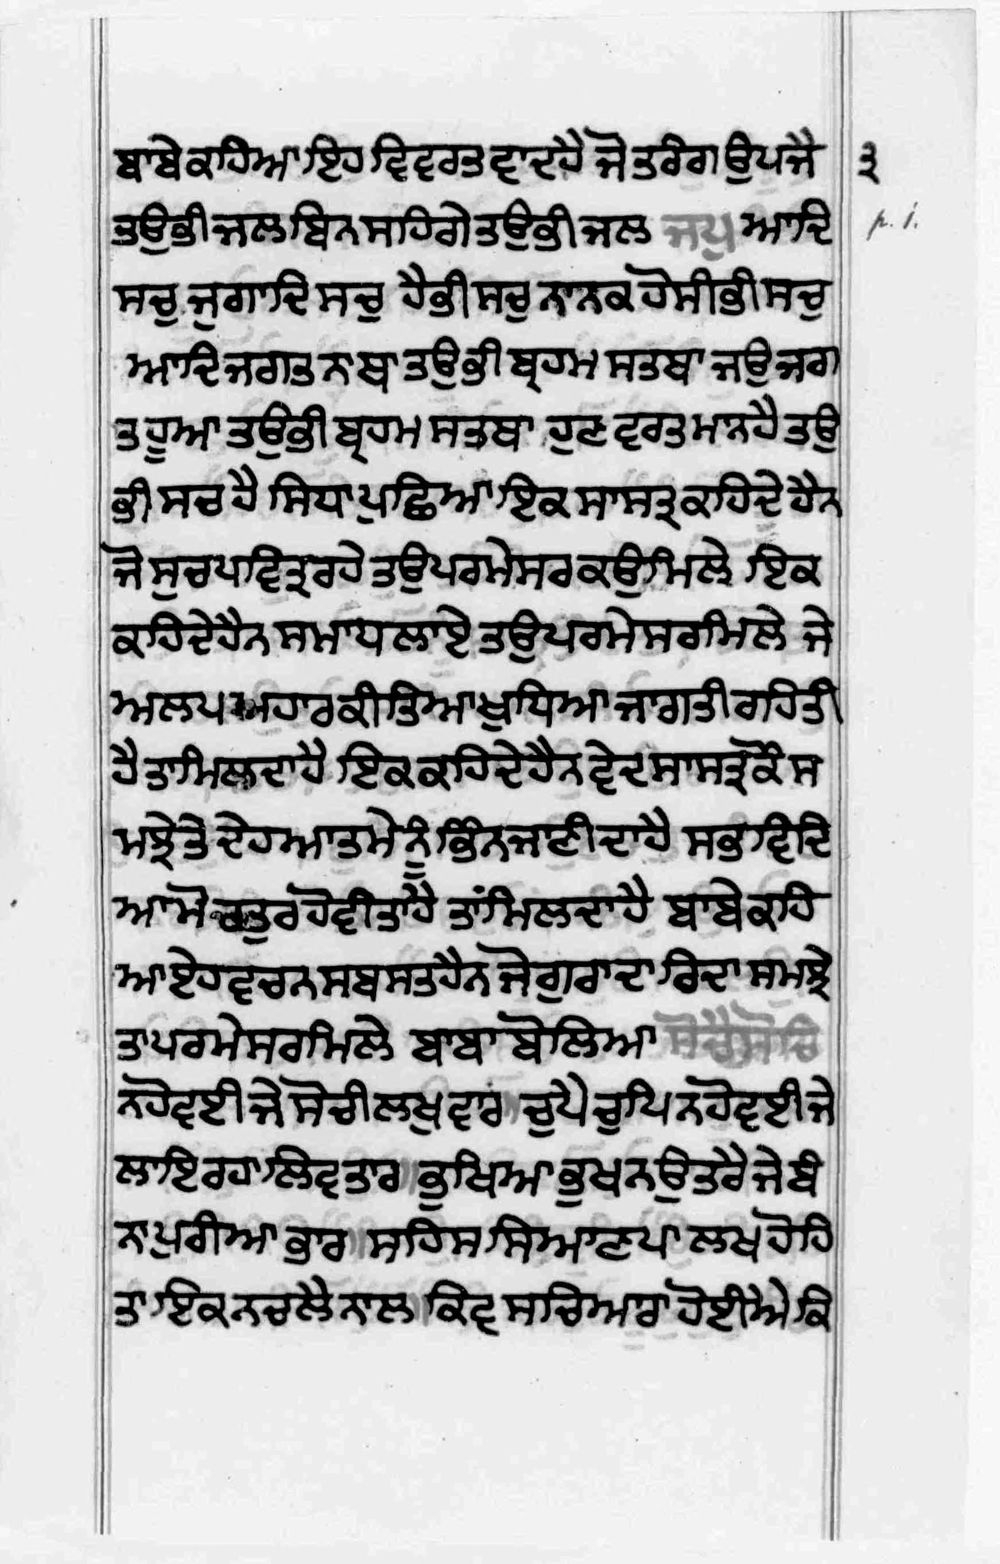 ਬਾਬੇ ਕਹਿਆ ਇਹ ਵਿਵਰਤ ਵਾਦ ਹੈ ਜੋ ਤਰੰਗ ਉਪਜੈ ੩
ਤਉ ਭੀ ਜਲ ਬਿਨਸਹਿਗੇ ਤਉ ਭੀ ਜਲ ਜਪੁ ਆਦਿ p. 1.
ਸਚੁ ਜੁਗਾਦਿ ਸਚੁ ਹੈ ਭੀ ਸਚੁ ਨਾਨਕ ਹੋਸੀ ਭੀ ਸਚੁ
ਆਦਿ ਜਗਤ ਨ ਥਾ ਤਉ ਭੀ ਬ੍ਰਹਮ ਸਤ ਥਾ ਜਉ ਜਗ
ਤ ਹੂਆ ਤਉ ਭੀ ਬ੍ਰਹਮ ਸਤ ਥਾ ਹੁਣ ਵਰਤਮਾਨ ਹੈ ਤਉ
ਭੀ ਸਚ ਹੈ ਸਿਧਾ ਪੁਛਿਆ ਇਕ ਸਾਸਤ੍ਰ ਕਹਿਦੇ ਹੈਨ
ਜੋ ਸੁਚ ਪਵਿਤ੍ਰ ਰਹੇ ਤਉ ਪਰਮੇਸਰ ਕਉ ਮਿਲੇ ਇਕ
ਕਹਿਦੇ ਹੈਨ ਸਮਾਧ ਲਾਏ ਤਉ ਪਰਮੇਸਰ ਮਿਲੇ ਜੇ
ਅਲਪ ਅਹਾਰ ਕੀਤਿਆ ਖੁਧਿਆ ਜਾਗਤੀ ਰਹਿਤੀ
ਹੈ ਤਾ ਮਿਲਦਾ ਹੈ ਇਕ ਕਹਿਦੇ ਹੈਨ ਵੇਦ ਸਾਸਤ੍ਰ ਕੋ ਸ
ਮਝੇ ਤੇ ਦੇਹ ਆਤਮੇ ਨੂੰ ਭਿੰਨ ਜਾਣੀਦਾ ਹੈ ਸਭ ਵਿਦਿ
ਆ ਮੋ ਚਤੁਰ ਹੋਵੀਤਾ ਹੈ ਤਾਂ ਮਿਲਦਾ ਹੈ ਬਾਬੇ ਕਹਿ
ਆ ਏਹ ਵਚਨ ਸਬ ਸਤ ਹੈਨ ਜੋ ਗੁਰਾ ਦਾ ਰਿਦਾ ਸਮਝੇ
ਤਾ ਪਰਮੇਸਰ ਮਿਲੇ ਬਾਬਾ ਬੋਲਿਆ ਸੋਚੈ ਸੋਚਿ
ਨ ਹੋਵਈ ਜੇ ਸੋਚੀ ਲਖ ਵਾਰ ਚੁਪੈ ਚੁਪਿ ਨ ਹੋਵਈ ਜੇ
ਲਾਇ ਰਹਾ ਲਿਵ ਤਾਰ ਭੁਖਿਆ ਭੁਖ ਨ ਉਤਰੈ ਜੇ ਬੰ
ਨਾ ਪੁਰੀਆ ਭਾਰ ਸਹਿਸ ਸਿਆਣਪਾ ਲਖ ਹੋਹਿ
ਤਾ ਇਕ ਨ ਚਲੈ ਨਾਲ ਕਿਵ ਸਚਿਆਰਾ ਹੋਈਐ ਕਿ